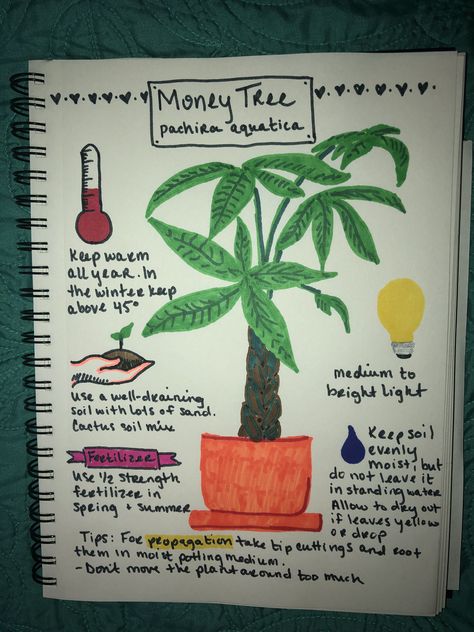 Money Tree
pachira aquatica
Keep warm
all year. In
the winter keep
above 45°
medium to
bright light
Use a well-draining
soil with lots of sand.
Cactus soil mix
Fertilizer
Use 1/2 strength
fertilizer in
spring + summer
Keep soil
evenly
moist, but
do not leave it
in standing water
Allow to dry out
if leaves yellow
or drop
Tips: For propagation take tip cuttings and root
them in moist potting medium.
- Don't move the plant around too much